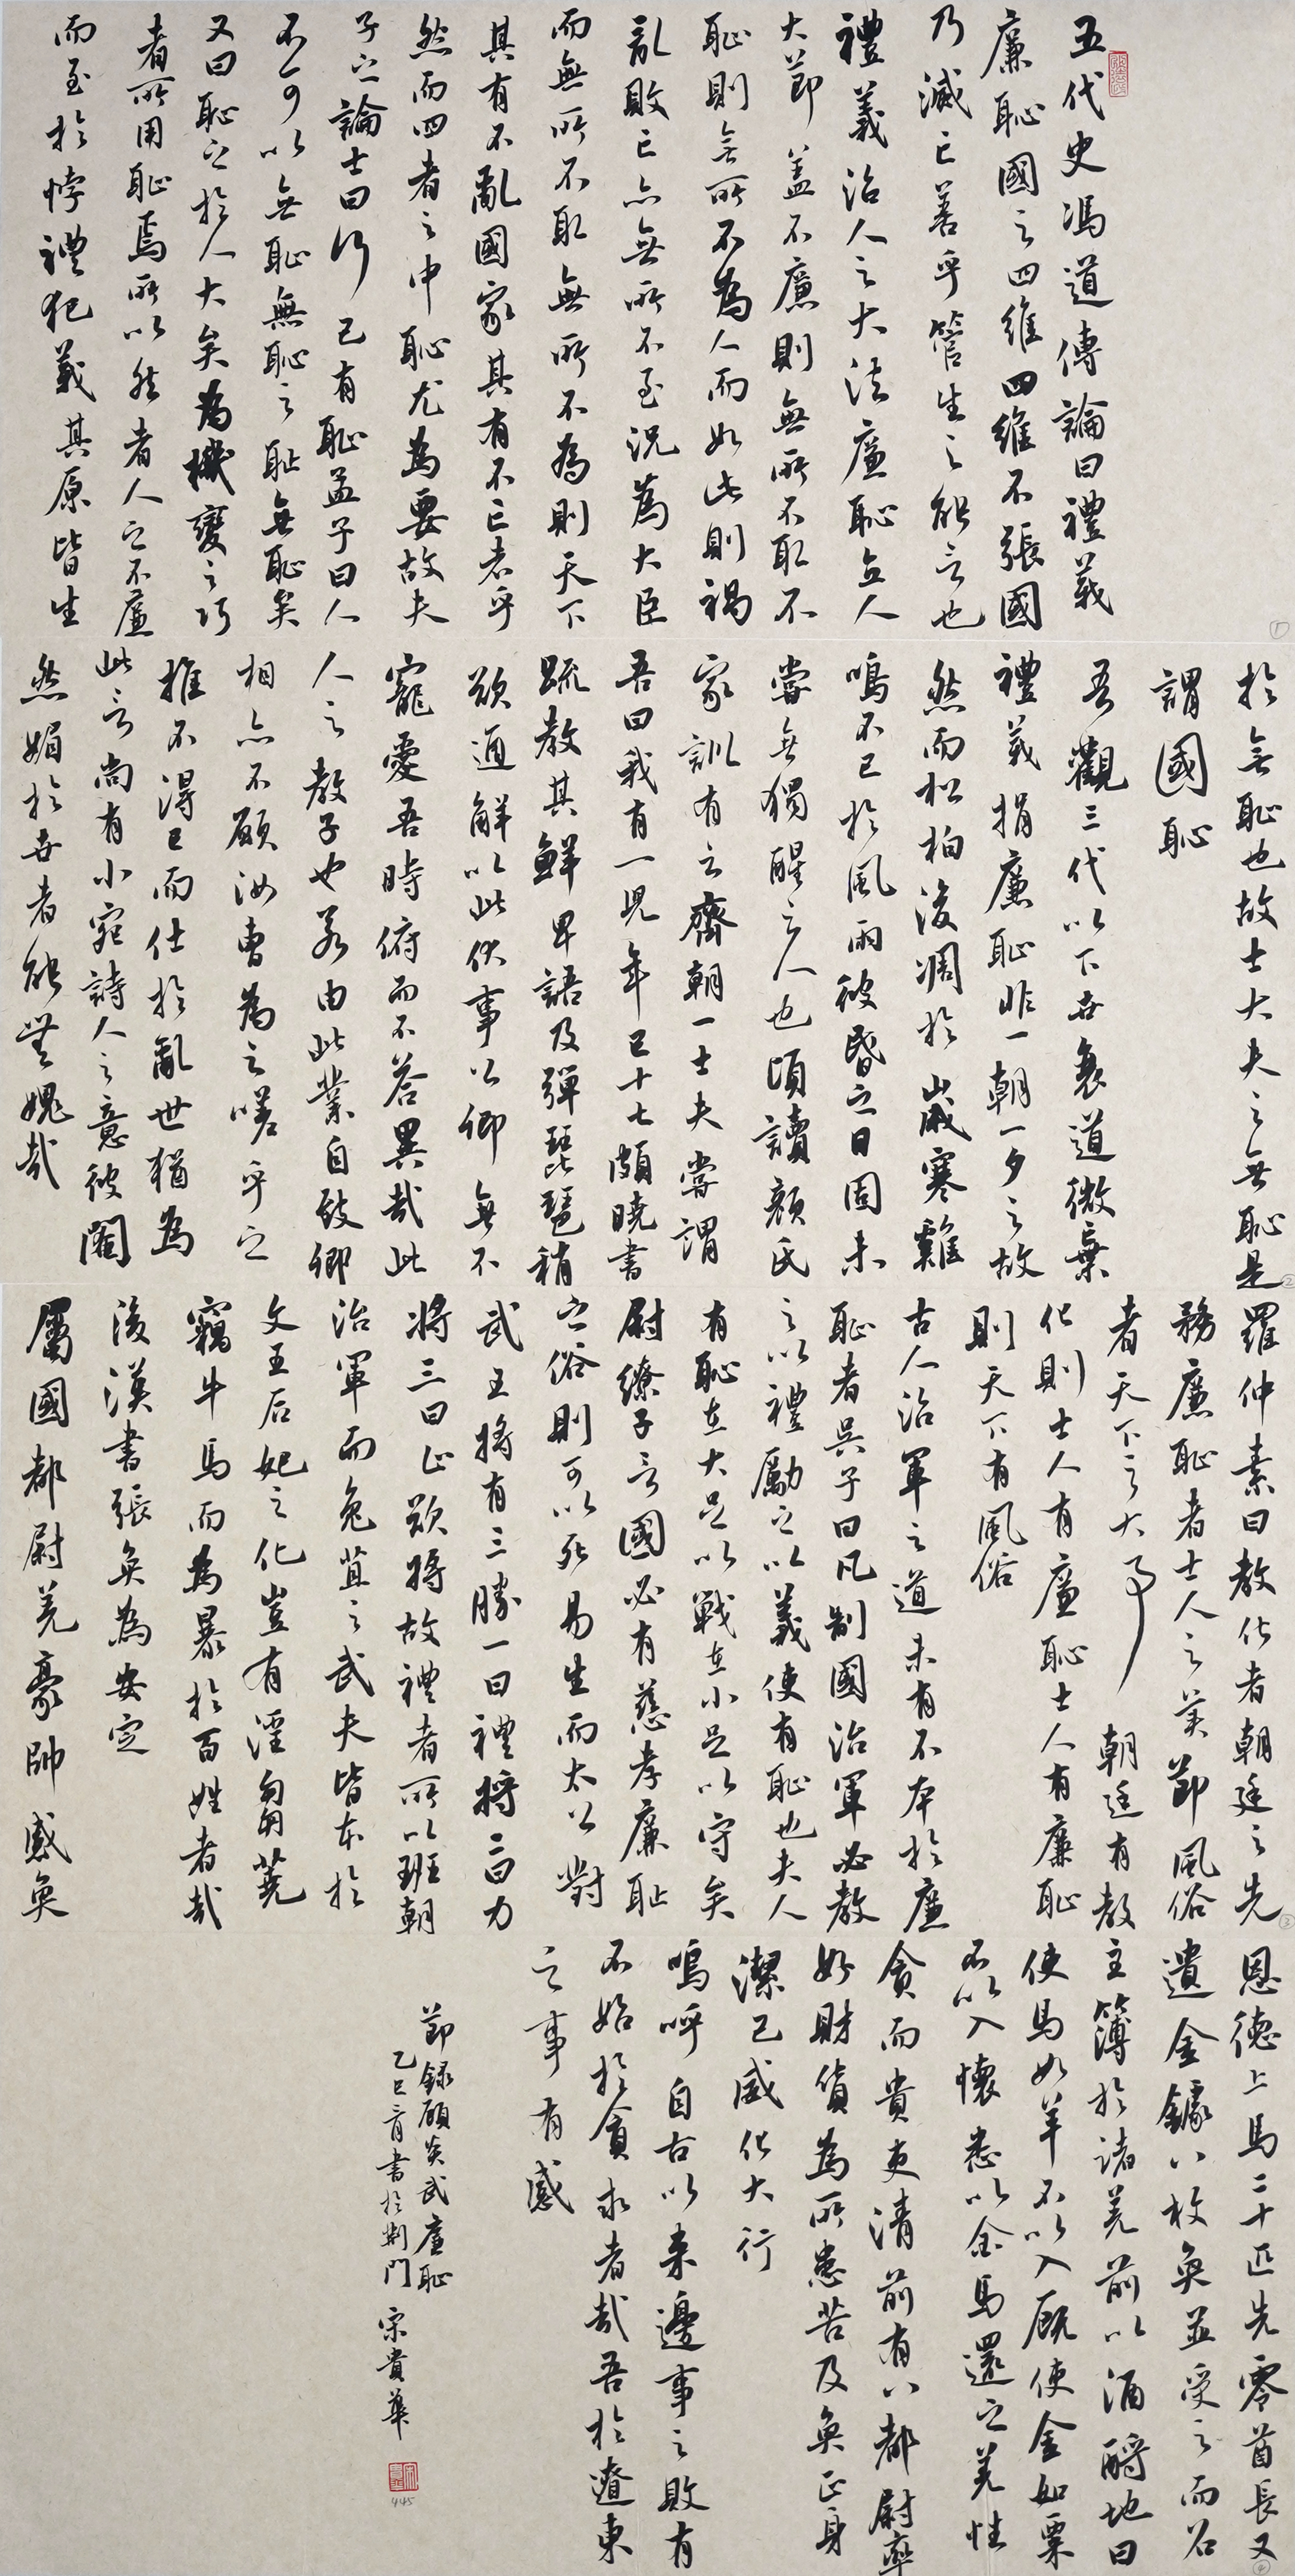 五代史馮道傳論曰禮義
廉恥國之四維四維不張國
乃滅亡善乎管生之能言也
禮義治人之大法廉恥立人
大節蓋不廉則無所不取不
恥則無所不為人而如此則禍
亂敗亡亦無所不至況為大臣
而無所不取無所不為則天下
其有不亂國家其有不亡者乎
然而四者之中恥尤為要故夫
子之論士曰行己有恥孟子曰人
不可以無恥無恥之恥無恥矣
又曰恥之於人大矣為機變之巧
者所用恥焉所以然者人之不廉
而至於悖禮犯義其原皆生
於無恥也故士大夫之無恥是
謂國恥
吾觀三代以下世衰道微棄
禮義捐廉恥非一朝一夕之故
然而松柏後凋於歲寒雞
鳴不已於風雨彼昏之日固未
嘗無獨醒之人也頃讀顏氏
家訓有云齊朝一士夫嘗謂
吾曰我有一兒年已十七頗曉書
疏教其鮮卑語及彈琵琶稍
欲通解以此伏事公卿無不
寵愛吾時俯而不答異哉此
人之教子也若由此業自致卿
相亦不願汝曹為之嗟乎之
推不得已而仕於亂世猶為
此言尚有小宛詩人之意彼閹
然媚於世者能無愧哉
羅仲素曰教化者朝廷之先
務廉恥者士人之美節風俗
者天下之大事朝廷有教
化則士人有廉恥士人有廉恥
則天下有風俗
古人治軍之道未有不本於廉
恥者吳子曰凡制國治軍必教
之以禮勵之以義使有恥也夫人
有恥在大足以戰在小足以守矣
尉繚子言國必有慈孝廉恥
之俗則可以死易生而太公對
武王將有三勝一曰禮將二曰力
將三曰止欲將故禮者所以班朝
治軍而兔苴之武夫皆本於
文王后妃之化豈有淫芻蕘
竊牛馬而為暴於百姓者哉
後漢書張奐為安定
屬國都尉羌豪帥感奐
恩德上馬二十匹先零酋長又
遺金鐻八枚奐並受之而召
主簿於諸羌前以酒酹地曰
使馬如羊不以入厩使金如粟
不以入懷悉以金馬還之羌性
貪而貴吏清前有八都尉率
好財貨為所患苦及奐正身
潔己威化大行
嗚呼自古以來邊事之敗有
不始於貪求者哉吾於遼東
之事有感
節錄顧炎武廉恥
乙巳三月書於荆門 宋貴華
445